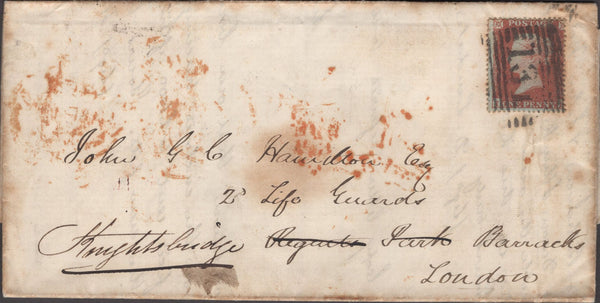 POSTAGE
ONE PENNY
John G C Hamilton Esq
2d Life Guards
Knightsbridge Regents Park Barracks
London